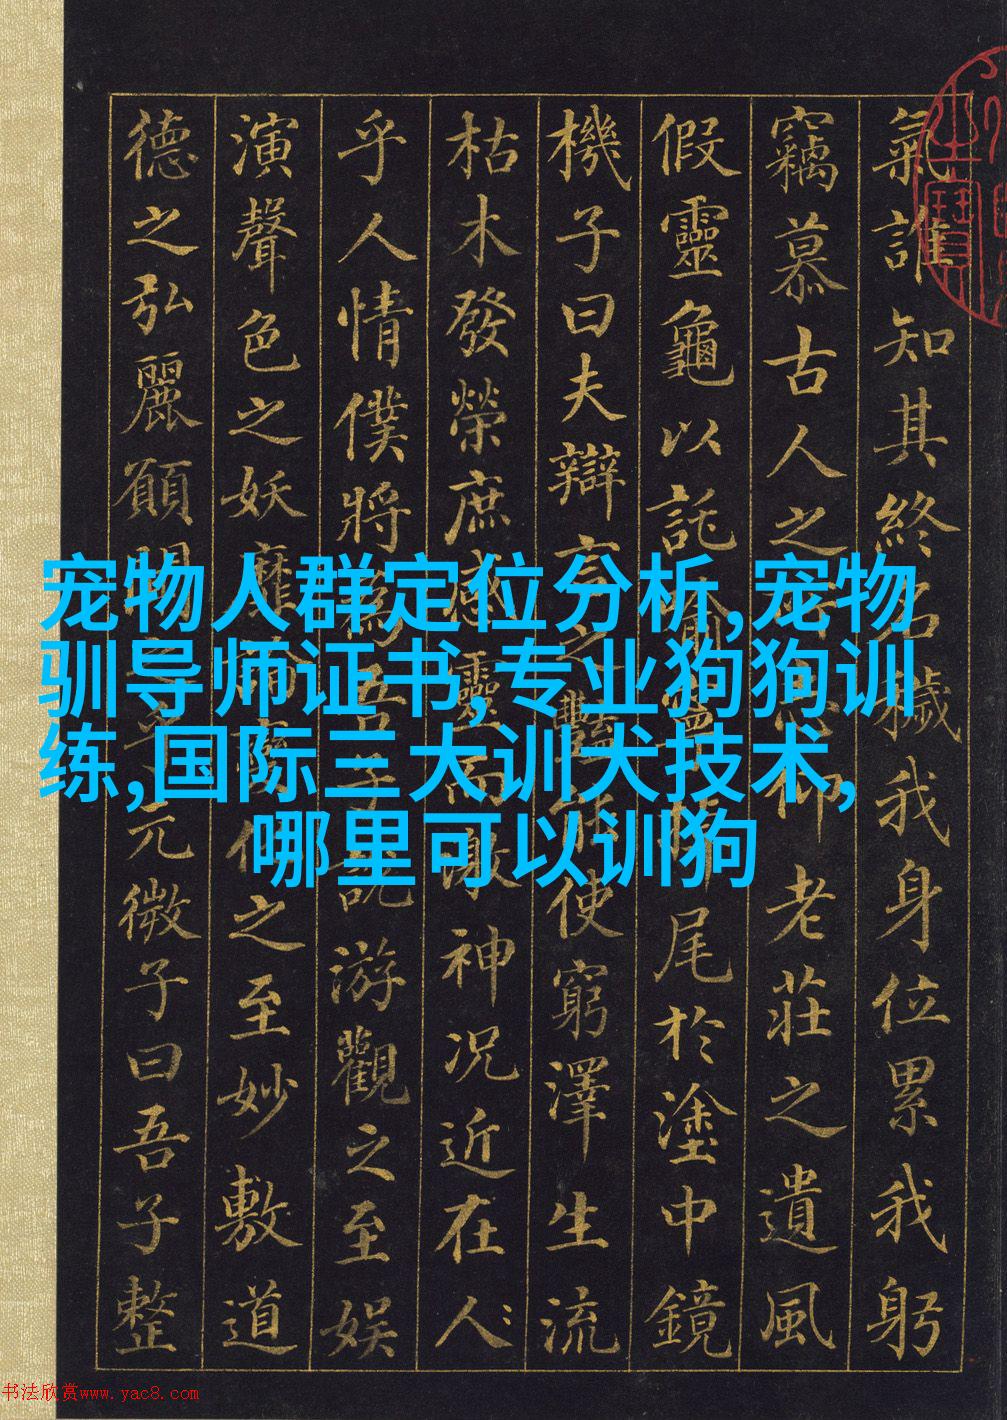 氣誰知其終名穢我身位累我躬
竊慕古人之所志仰老莊之遺風
假靈龜以託喻寧掉尾於塗中鏡
機子曰夫辯言之豔能使窮澤生流
枯木發榮庶感靈而激神況近在人
乎人情僕將為吾子說游觀之至娛
演聲色之妖靡論變化之至妙敷道
德之弘麗願聞之乎元微子曰吾子整
宠物人群定位分析,宠物
驯导师证书,专业狗狗训
练,国际三大训犬技术,
哪里可以训狗
书法欣赏www.yac8.com